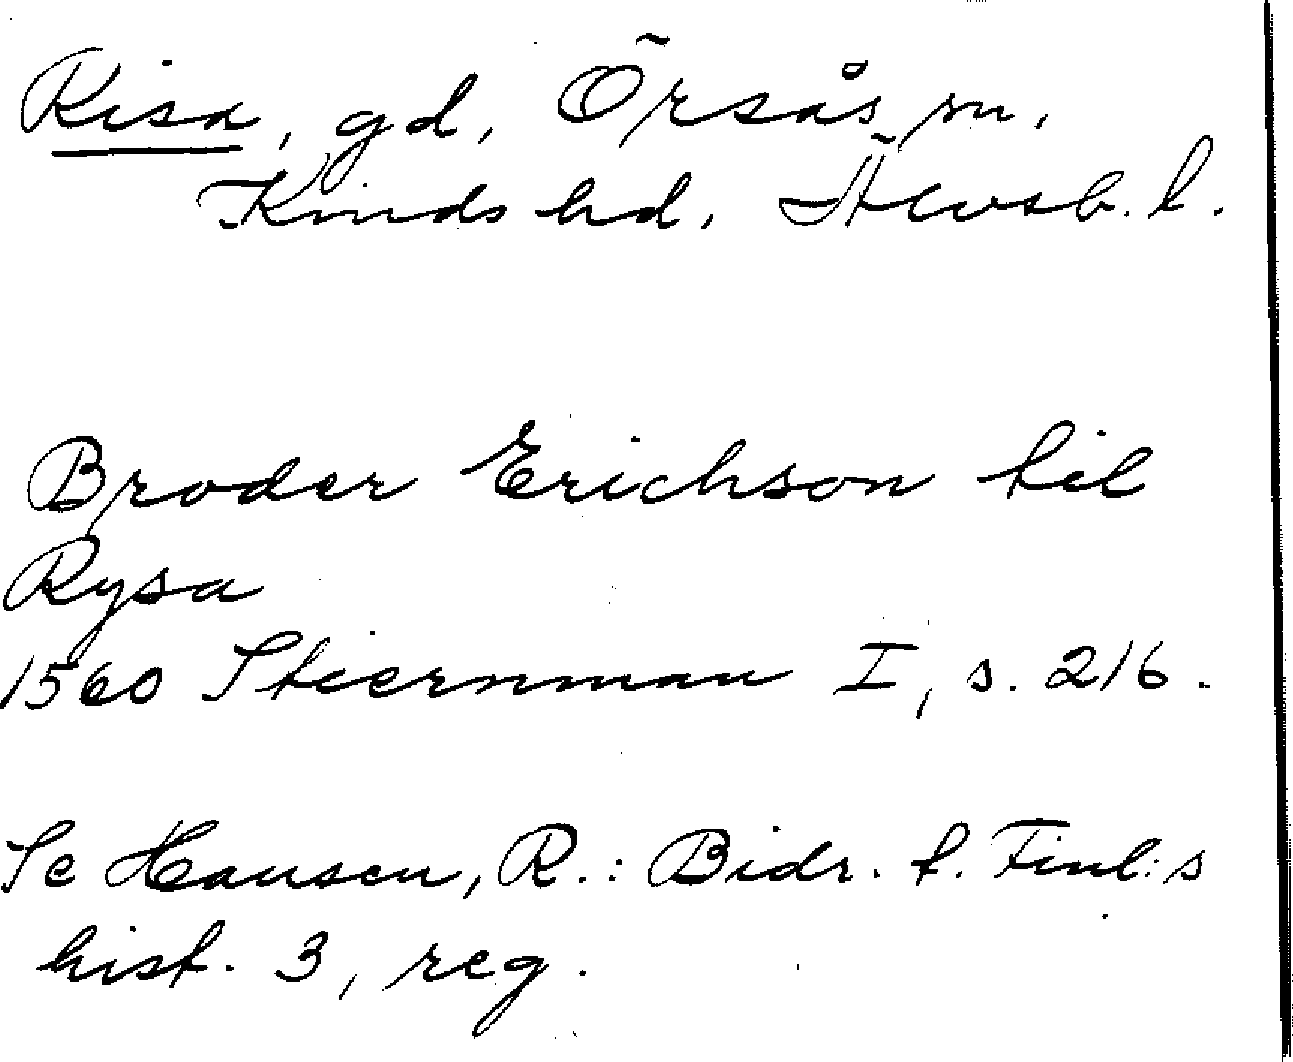 Risa, gd, Örsås sn,
Kinds hd, Älvsb. l.
Broder Erichson til
Rysa
1560 Stiernman I, s. 216.
Se Hausen, R.: Bidr. t. Finl:s
hist. 3, reg.